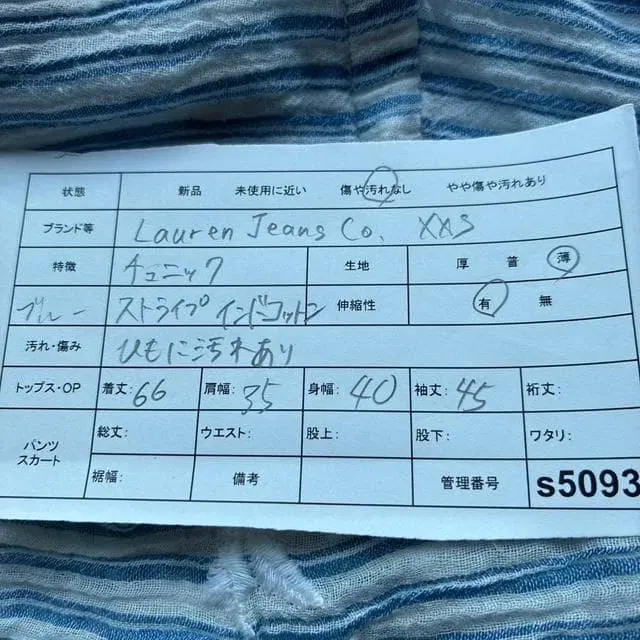 状態 新品 未使用に近い 傷や汚れなし やや傷や汚れあり
ブランド等 Lauren Jeans Co. XXS
特徴 チュニック 生地 厚 普 薄
ブルー ストライプ インドコットン 伸縮性 有 無
汚れ・傷み ひもに汚れあり
トップス・OP 着丈: 66 肩幅: 35 身幅: 40 袖丈: 45 裄丈:
パンツ スカート 総丈: ウエスト: 股上: 股下: ワタリ:
裾幅: 備考 管理番号 s5093